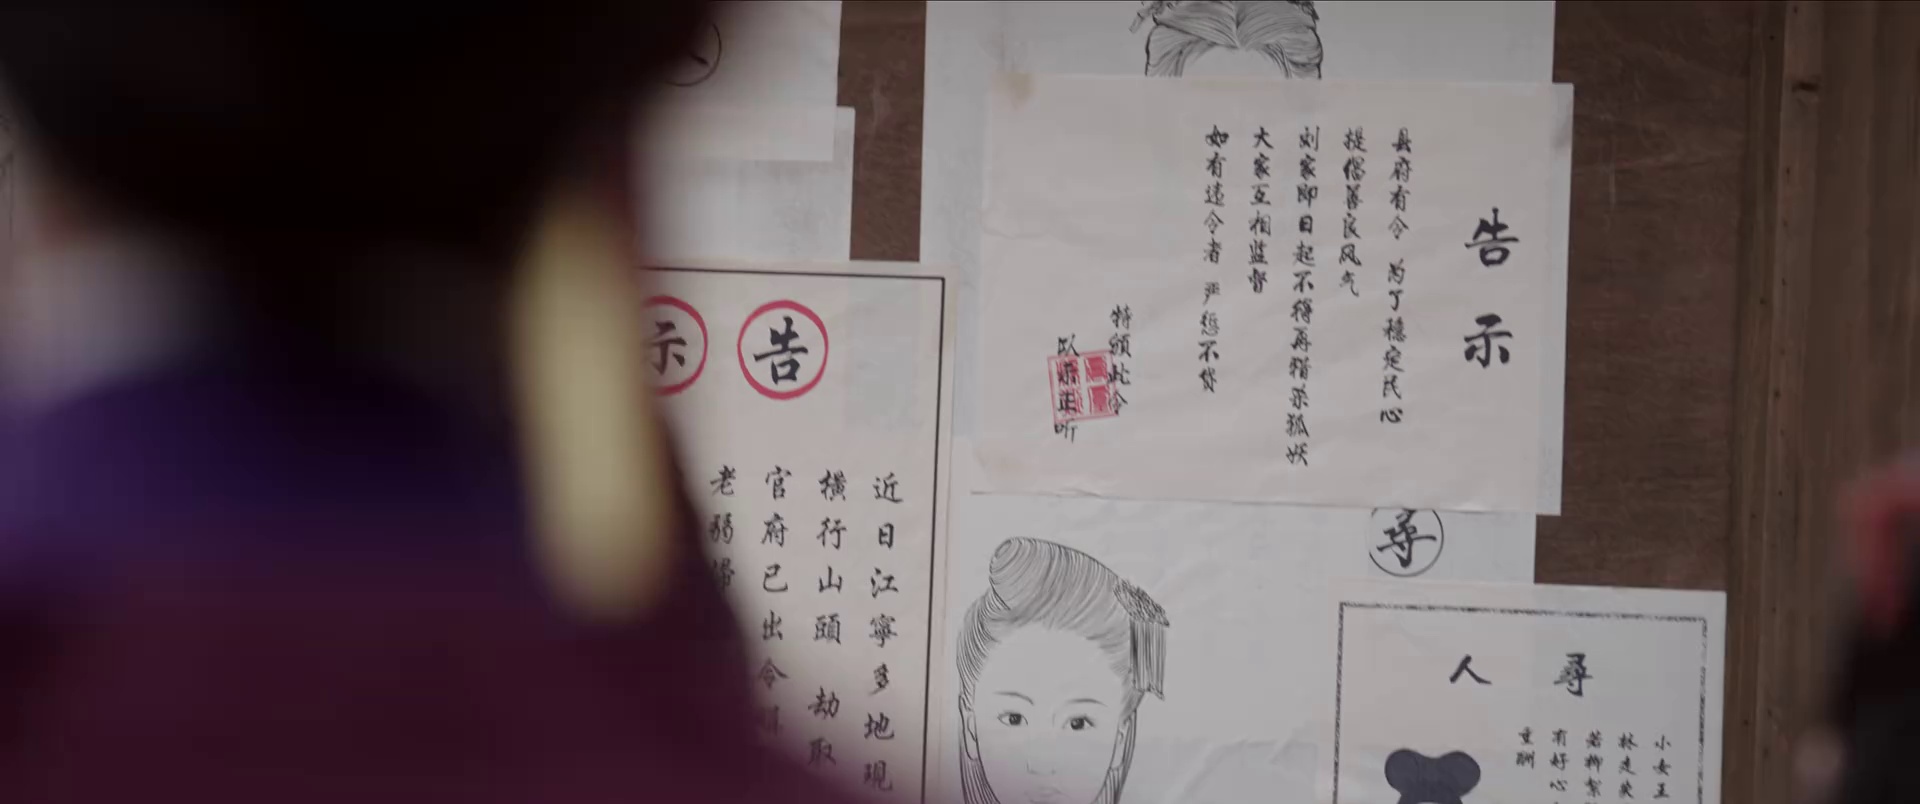 告示
县府有令 为了穩定民心
提倡善良风气
刘家即日起不得再猎杀狐妖
大家互相监督
如有违令者 严惩不贷
特颁此令
告示
近日江寧多地現
橫行山頭 劫取
官府已出令
老弱婦
尋
尋人
小女王
林走失
若柳絮
有好心
重酬